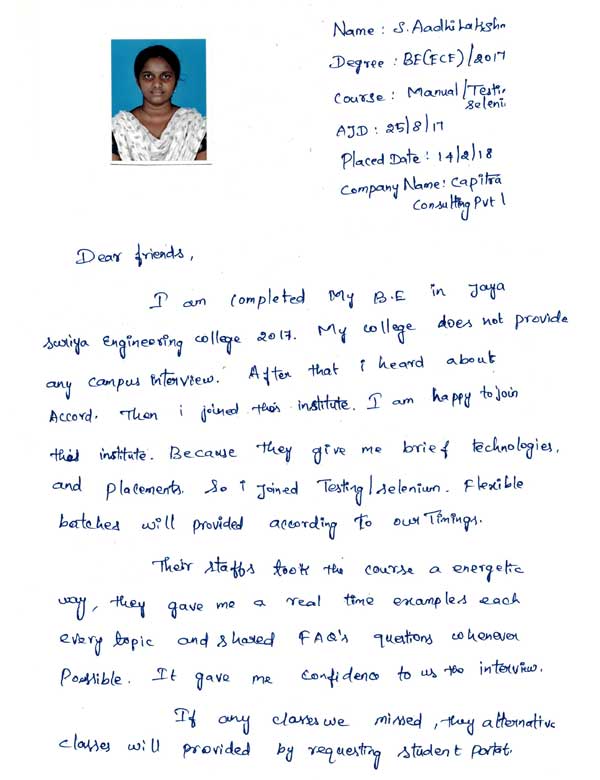 Name : S. Aadhilaksh
Degree : BE(ECE)/2017
Course : Manual/Testi
Seleni
AJD : 25/8/17
Placed Date : 14/2/18
Company Name: Capitra
Consulting Pvt l
Dear friends,
I am completed My B.E in Jaya
suriya Engineering college 2017. My college does not provide
any campus interview. After that i heard about
Accord. Then i joined this institute. I am happy to join
this institute. Because they give me brief technologies,
and placements. So i joined Testing/selenium. Flexible
batches will provided according to our Timings.
Their staffs took the course a energetic
way, they gave me a real time examples each
every topic and shared FAQ's questions whenever
Possible. It gave me confidence to us the interview.
If any classes we missed, they alternative
classes will provided by requesting student portat.